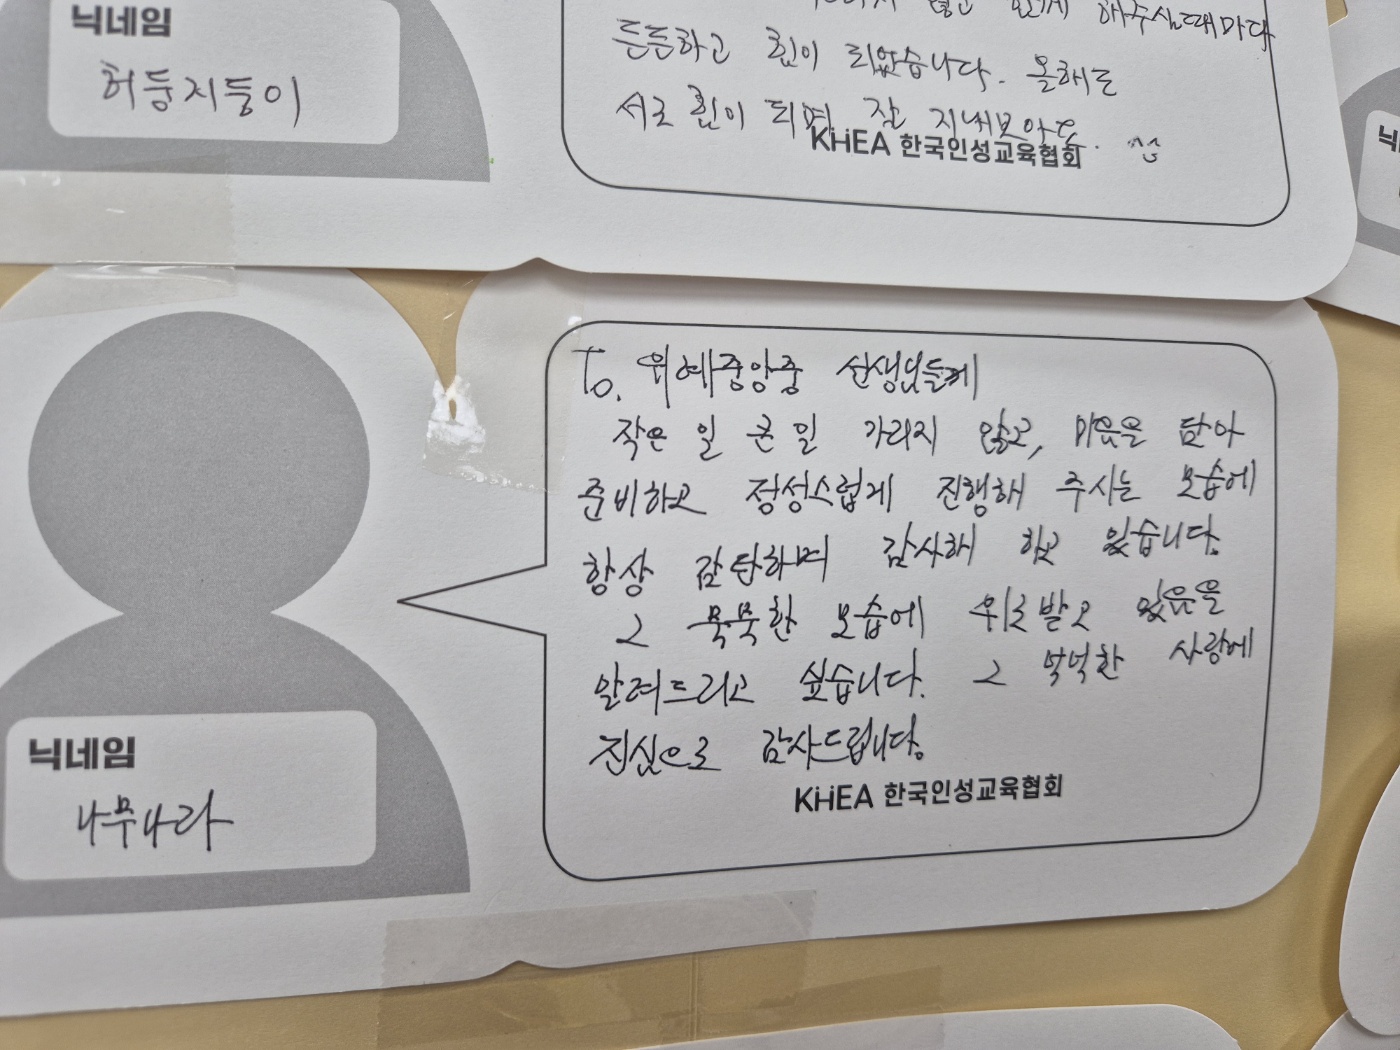 닉네임
허둥지둥이
않고 함께 해주실때마다
든든하고 힘이 되었습니다. 올해도
서로 힘이 되며 잘 지내보아요. ^^
KHEA 한국인성교육협회
To. 위례중앙중 선생님들께
작은 일 큰 일 가리지 않고, 마음을 담아
준비하고 정성스럽게 진행해 주시는 모습에
항상 감탄하며 감사해 하고 있습니다.
그 묵묵한 모습에 위로받고 있음을
알려드리고 싶습니다. 그 넉넉한 사랑에
진심으로 감사드립니다.
KHEA 한국인성교육협회
닉네임
나무나라